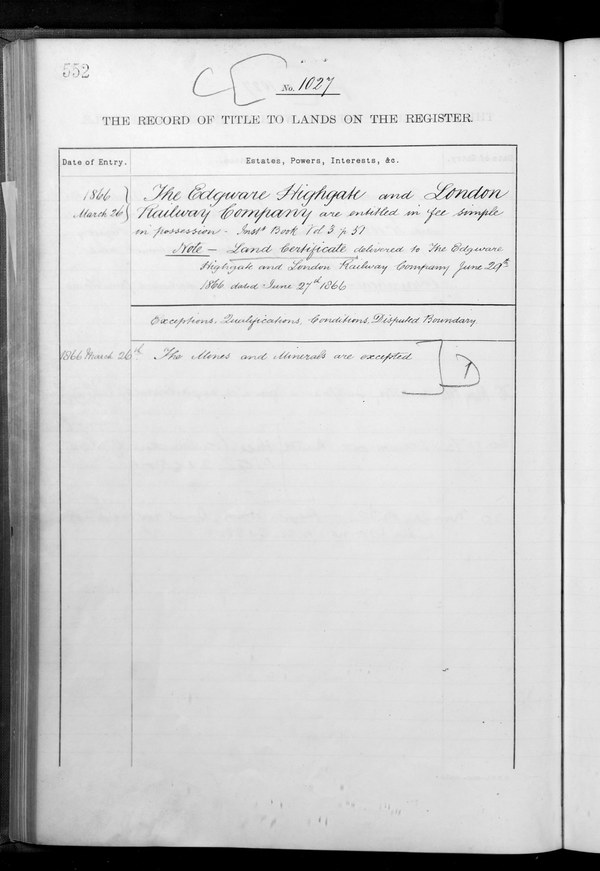 552
C
No. 1027
THE RECORD OF TITLE TO LANDS ON THE REGISTER.
Date of Entry.
Estates, Powers, Interests, &c.
1866
March 26
The Edgware Highgate and London
Railway Company are entitled in fee simple
in possession - Inst. Book Vol 3 p 51
Note - Land Certificate delivered to The Edgware
Highgate and London Railway Company June 29th
1866 dated June 27th 1866
Exceptions, Qualifications, Conditions, Disputed Boundary.
1866 March 26th. The Mines and Minerals are excepted